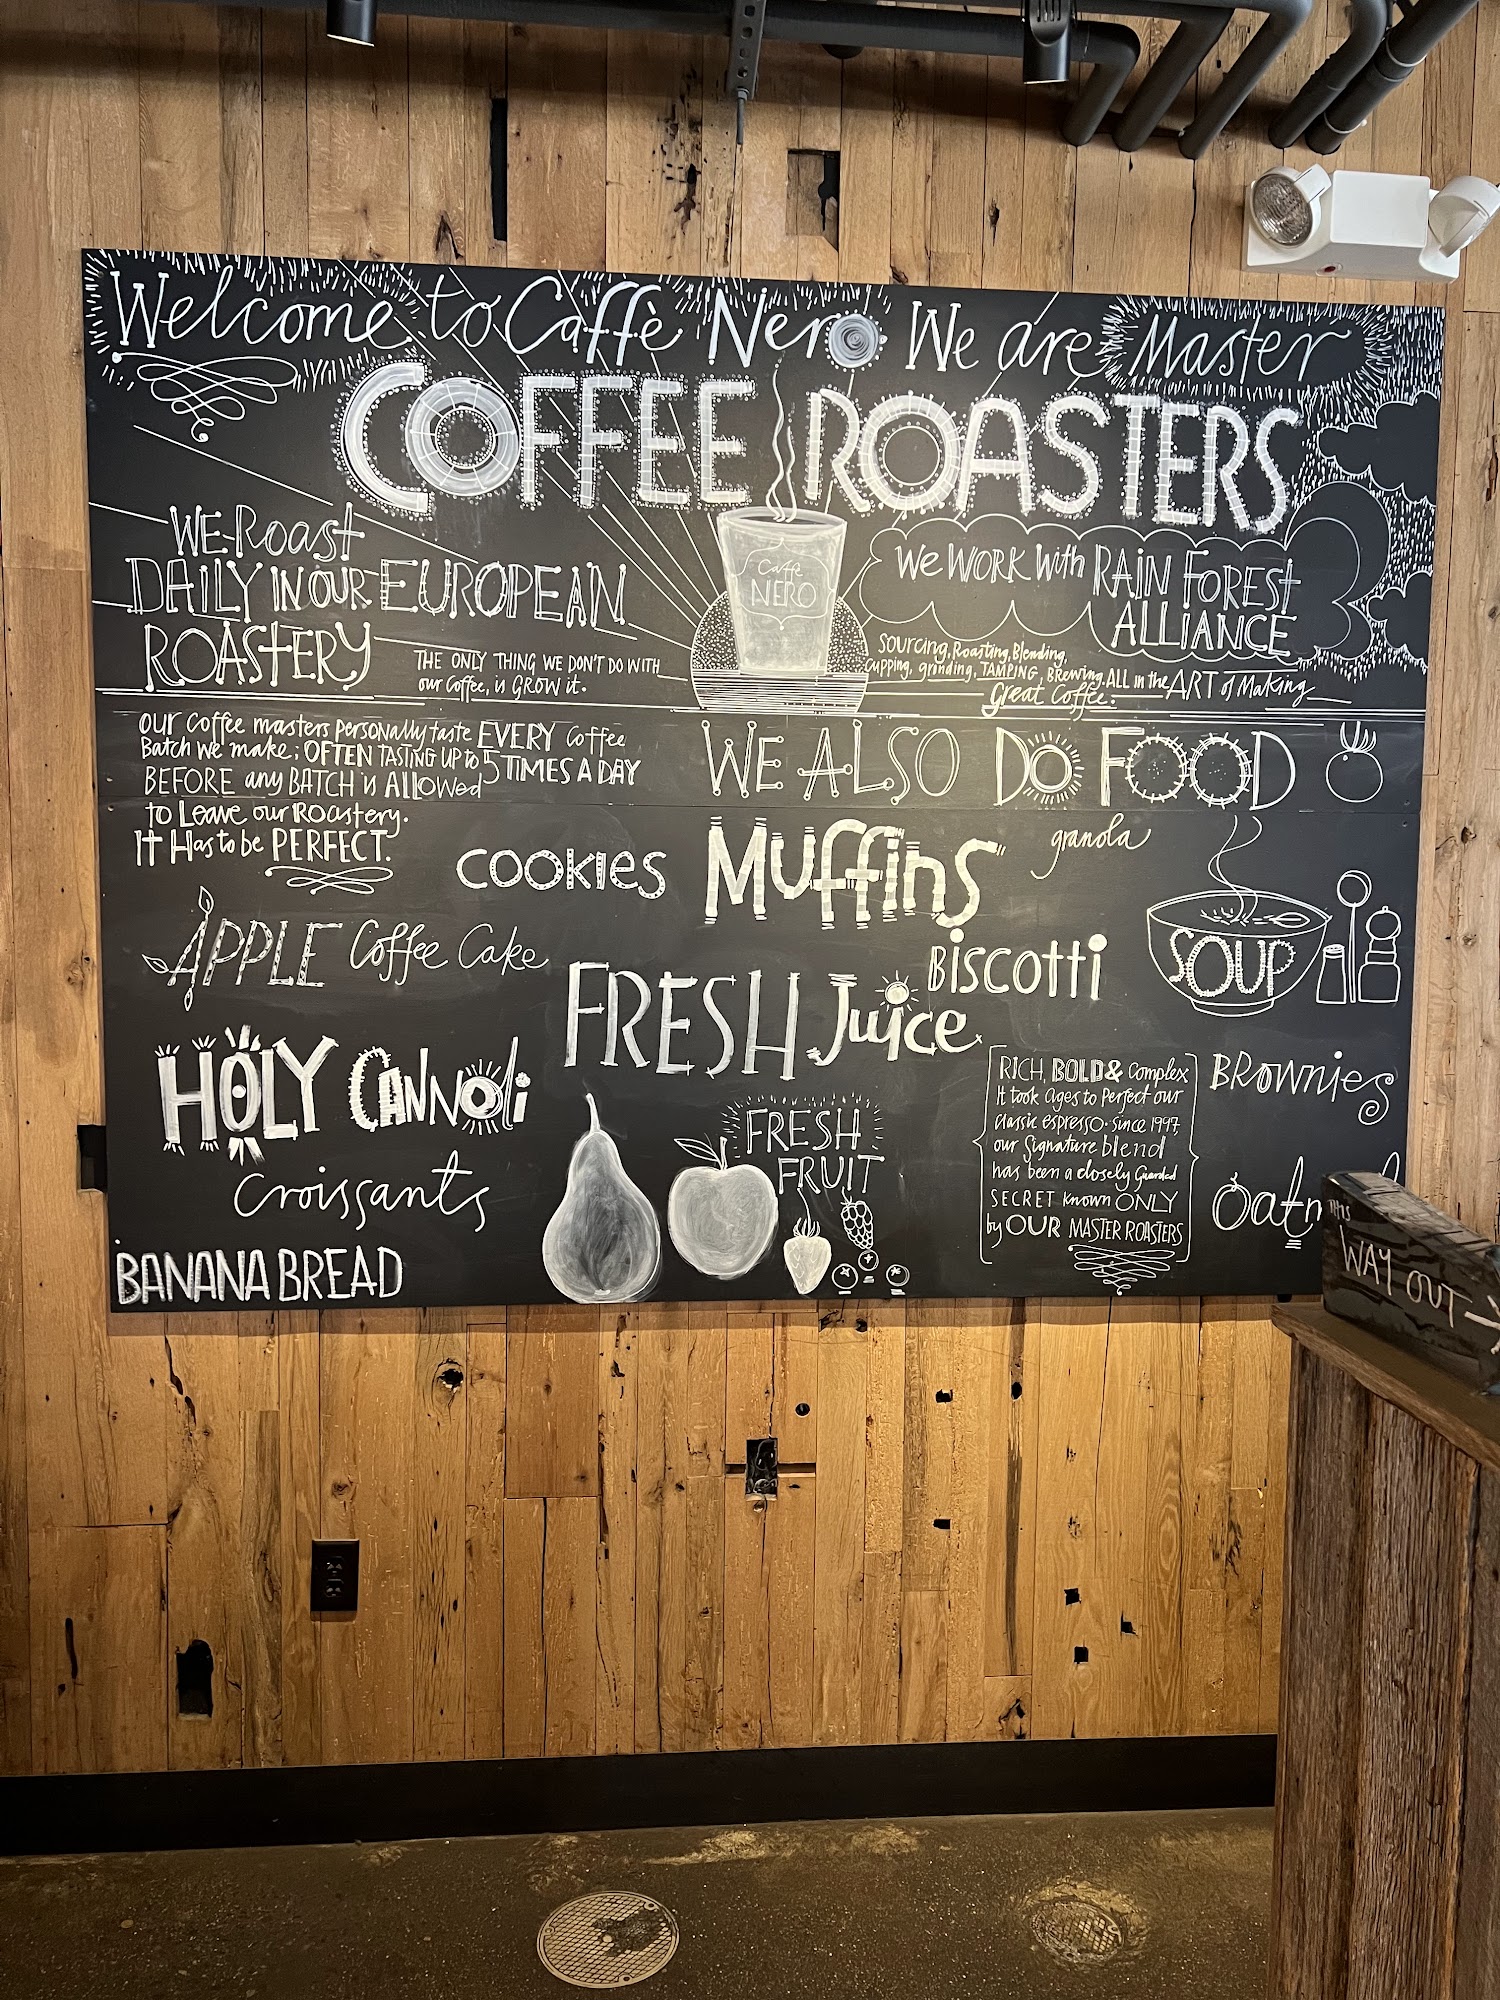 Welcome to Caffè Nero We are Master
COFFEE ROASTERS
WE Roast
DAILY IN OUR EUROPEAN
ROASTERY
THE ONLY THING WE DON'T DO WITH
our Coffee, is GROW it.
Caffè
NERO
We WORK With RAIN FOREST
ALLIANCE
Sourcing, Roasting, Blending,
Cupping, grinding, TAMPING, Brewing. ALL in the ART of Making
Great Coffee.
Our Coffee masters personally taste EVERY Coffee
Batch We make; OFTEN TASTING UP to 5 TIMES A DAY
BEFORE any BATCH is ALLOWed
to Leave our Roastery.
IT Has to be PERFECT.
WE ALSO DO FOOD
COOKIES
Muffins
granola
APPLE Coffee Cake
Biscotti
SOUP
FRESH Juice
HOLY CANNOli
Croissants
BANANA BREAD
FRESH
FRUIT
RICH, BOLD & Complex
It took Ages to Perfect our
Classic espresso. Since 1997,
our Signature blend
has been a closely Guarded
SECRET Known ONLY
by OUR MASTER ROASTERS
BROWNIES
this
WAY OUT